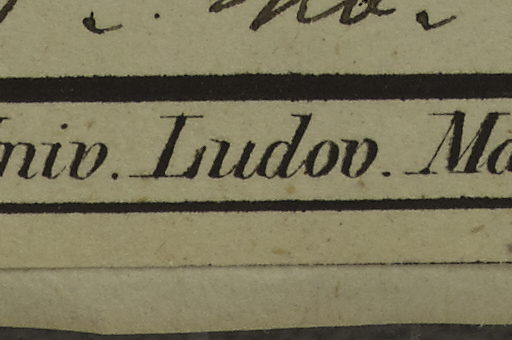 niv. Ludov. Ma